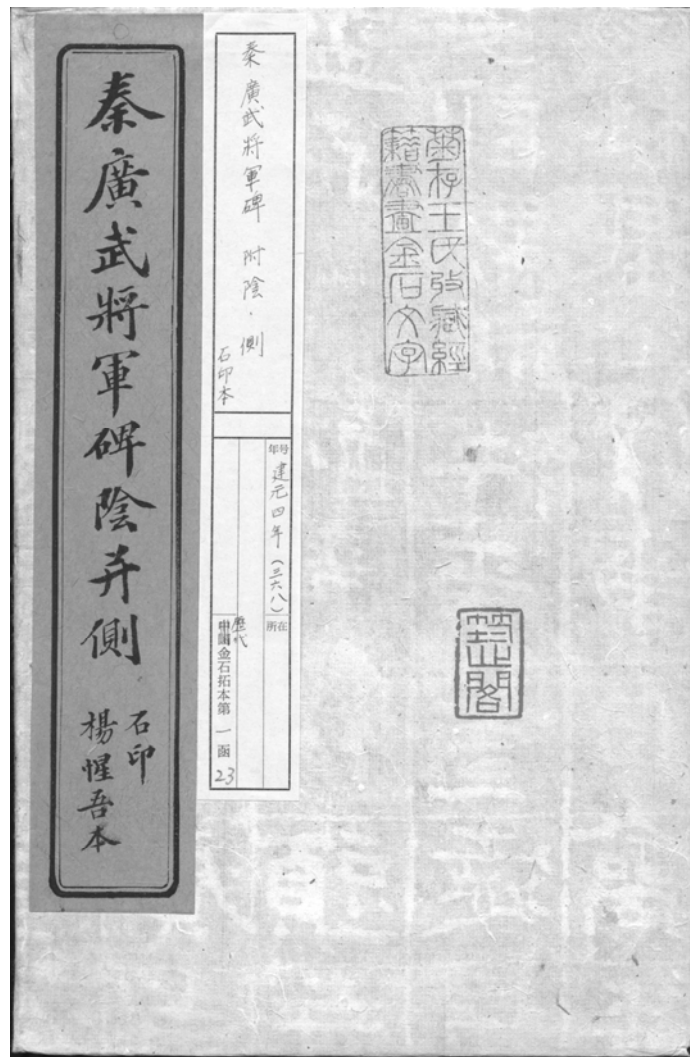 秦廣武將軍碑陰并側
石印
楊惺吾本
秦廣武將軍碑 附陰·側
石印本
年号 建元四年(三六八)
所在
歷代
中國金石拓本第一函 23
菊存王氏收藏經
籍書畫金石文字